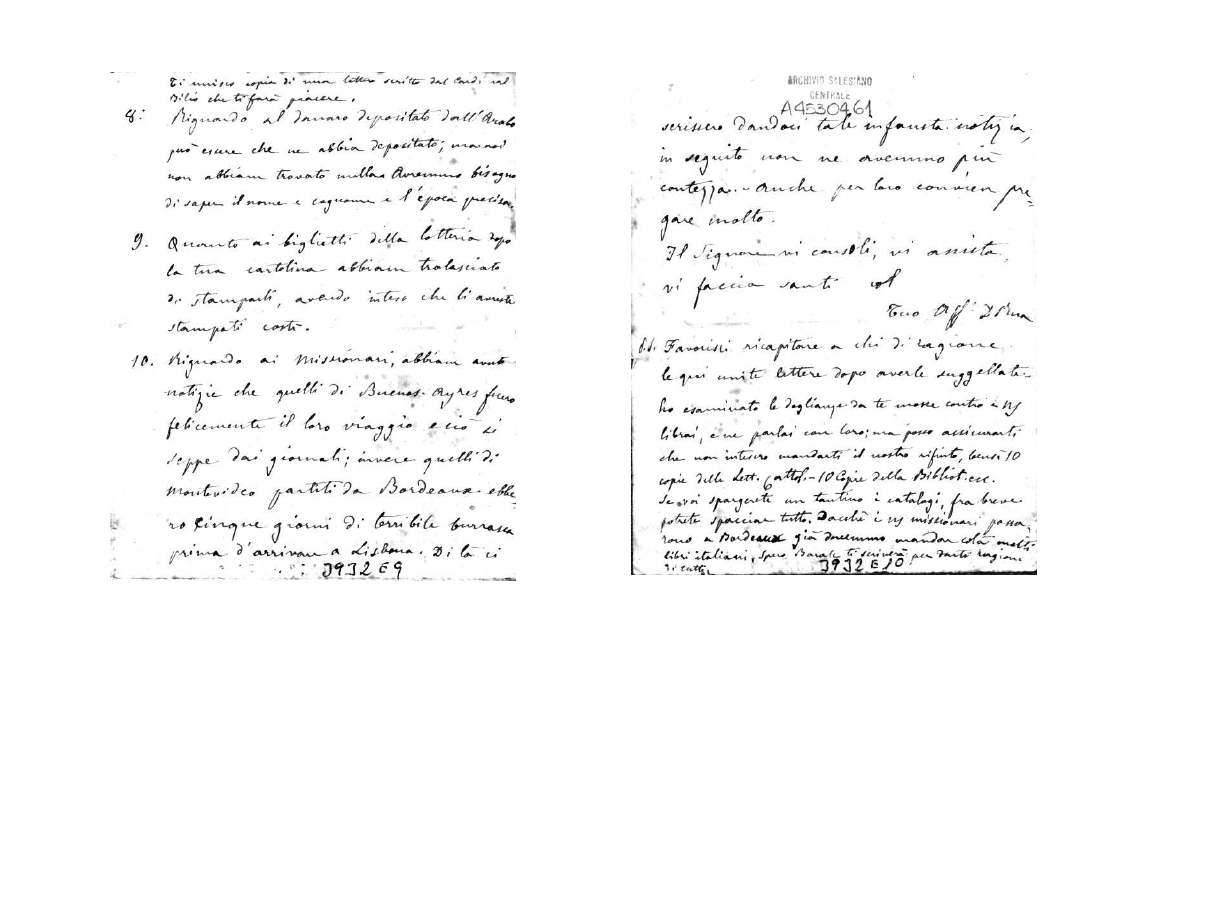 Ti unisco copia di una lettera scritta dal Cardinal
Bilio che ti farà piacere.
8: Riguardo al danaro depositato dall'Arabo
può essere che ne abbia depositato; ma noi
non abbiam trovato nulla Avremmo bisogno
di saper il nome e cognome e l'época precisa.
9. Quanto ai biglietti della lotteria dopo
la tua cartolina abbiam tralasciato
di stamparti, avendo inteso che li avreste
stampati costì.
10. Riguardo ai Missionari, abbiam avute
notizie che quelli di Buenos-Ayres fecero
felicemente il loro viaggio e ciò si
seppe dai giornali; invece quelli di
Montevideo partiti da Bordeaux ebbe-
ro cinque giorni di terribile burrasca
prima d'arrivare a Lisbona. Di là ci
3932 E 9
ARCHIVIO SALESIANO
CENTRALE
A4530461
scrissero dandoci tale infausta notizia;
in seguito non ne avemmo più
contezza. - Anche per loro convien pre=
gare molto.
Il Signore vi consoli, vi assista,
vi faccia santi
Tuo Aff. D Rua
P.S. Favorisci ricapitare a chi di ragione
le qui unite lettere dopo averle suggellate.
ho esaminato le doglianze da te mosse contro i ns
librai, e ne parlai con loro; ma posso assicurarti
che non intesero mandarti il nostro rifiuto, bensì 10
copie delle Lett. Cattol. - 10 Copie della Bibliot. ecc.
Se voi spargerete un tantino i catalogi, fra breve
potrete spacciar tutto. Dacchè i ns missionari passa
rono a Bordeaux già dovemmo mandar colà molti
libri italiani, Spero Barale ti scriverà per darte ragione
di tutto.
3932 E 10